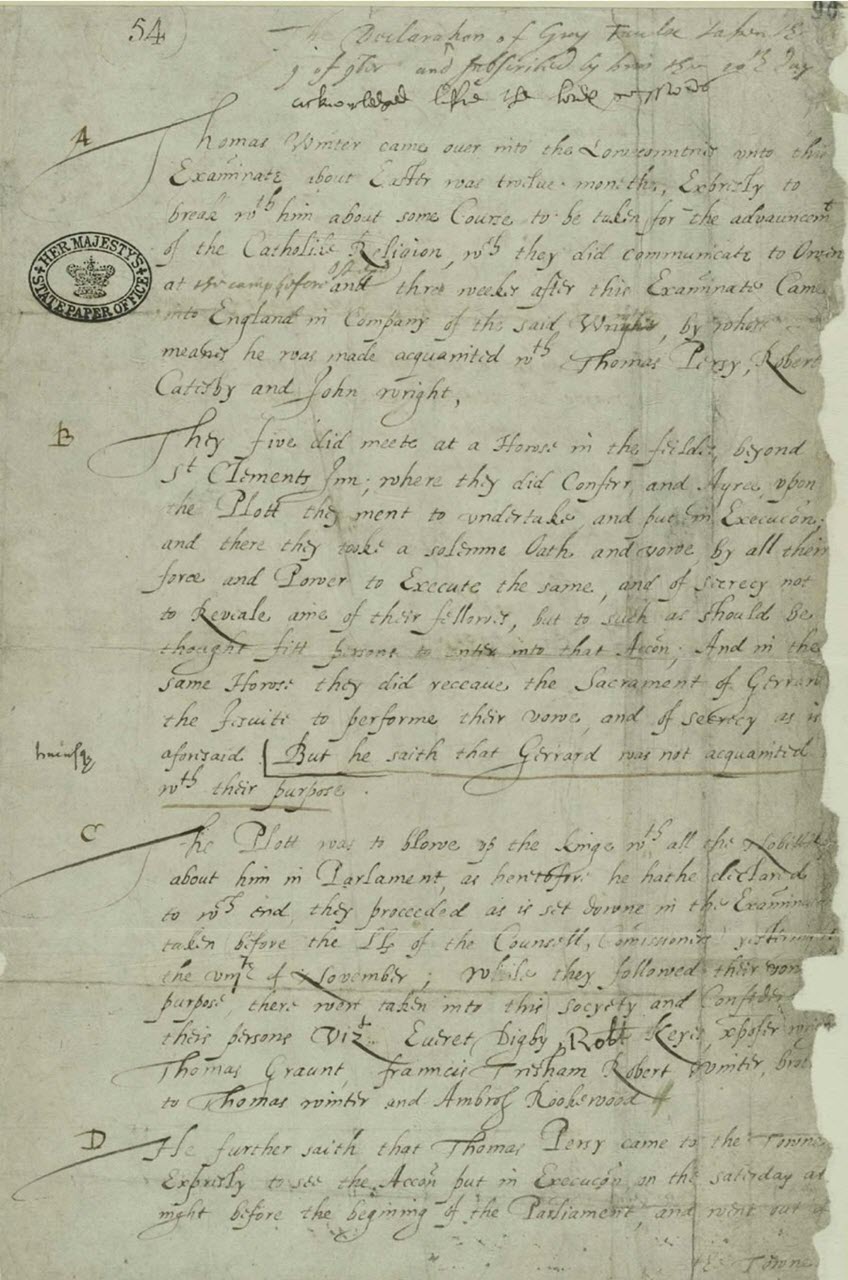 54
90
The Declaration of Guy Fawkes taken the
9 of 9ber and subscribed by him the 10th Day
acknowledged before the lords
A
Thomas Winter came over into the Lowcountries unto this
Examinate about Easter was twelue moneths, Expressly to
break wth him about some Course to be taken for the advauncemt
of the Catholike Religion, wch they did communicate to Owen
at the camp before and three weekes after this Examinate Came
into England in Company of the said Wright, by whose
meanes he was made acquainted wth Thomas Persy, Robert
Catesby and John wright,
B
They five did meete at a Howse in the feildes beyond
St Clements Inn; where they did Conferr and Agree upon
the Plott they ment to undertake and put in Execucõn;
and there they tooke a solemne Oath and vowe by all their
force and Power to Execute the same, and of secrecy not
to Reveale anie of their fellowes, but to such as should be
thought fitt persons to enter into that Accõn; And in the
same Howse they did receaue the Sacrament of Gerrard
the Jesuite to performe their vowe, and of secrecy as is
aforesaid. But he saith that Gerrard was not acquainted
hucusq
wth their purpose.
C
The Plott was to blowe up the kinge wth all the Nobilitie
about him in Parlament, as heretofore he hathe declared
to wch end, they proceeded as is set downe in the Examinacõn
taken before the LLs of the Counsell, Comissioners yesternight
the viijte of November; While they followed their vowe
purpose, there were taken into this society and Confeder
their persons vizt. Everet Digby, Robt Keyes, xpofer wright
Thomas Graunt, francis Tresham Robert winter, brother
to Thomas winter and Ambrose Rookewood
D
He further saith that Thomas Persy came to the Towne
Expressly to see the Accõn put in Execucõn on the saturday at
night before the begining of the Parliament, and went out of
the Towne
HER MAJESTY'S STATE PAPER OFFICE